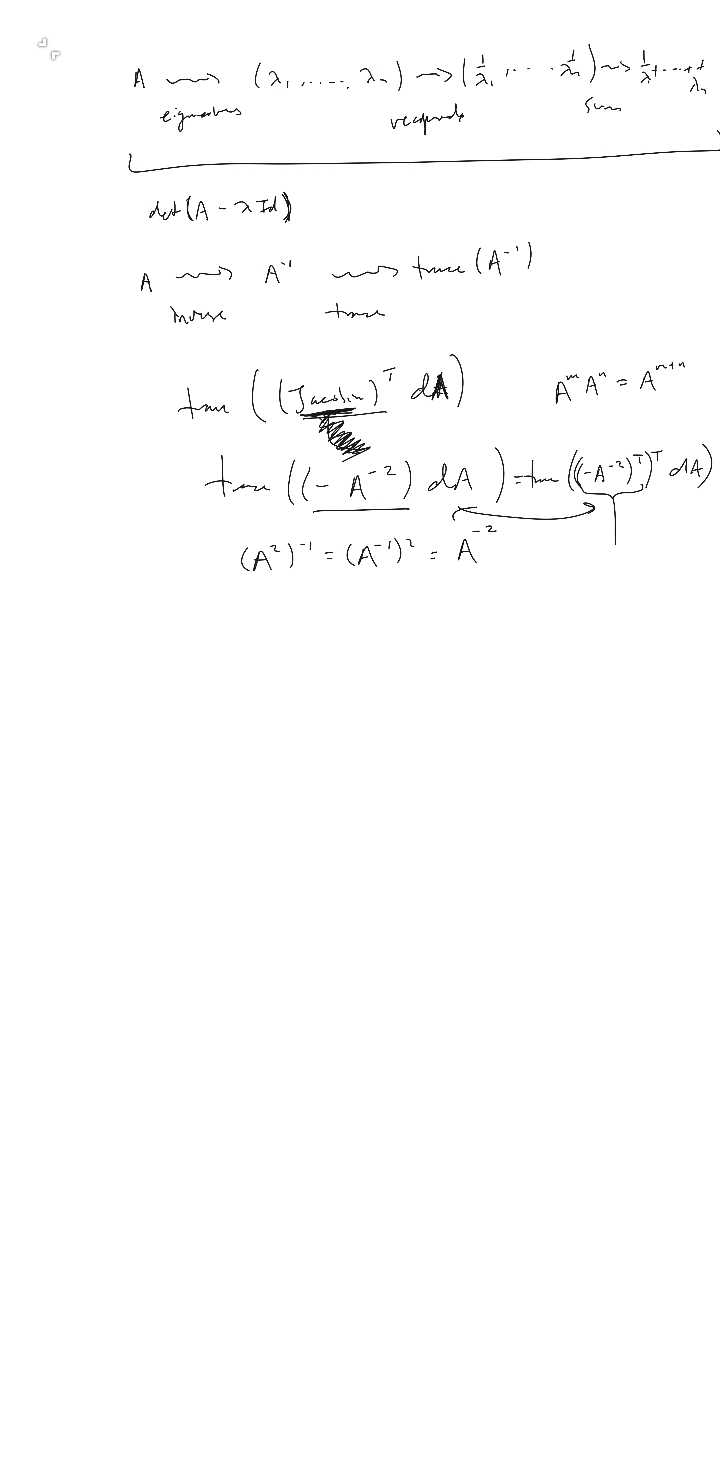 A ⟿ (λ₁, ...., λₙ) → (1/λ₁, ... 1/λₙ) ⟿ 1/λ₁ + ... + 1/λₙ
eigenvalues reciprocals sum
det(A - λ Id)
A ⟿ A⁻¹ ⟿ trace (A⁻¹)
inverse trace
trace ((Jacobian)ᵀ dA) AᵐAⁿ = Aᵐ⁺ⁿ
trace ((- A⁻²) dA) = trace (((-A⁻²)ᵀ)ᵀ dA)
(A²)⁻¹ = (A⁻¹)² = A⁻²